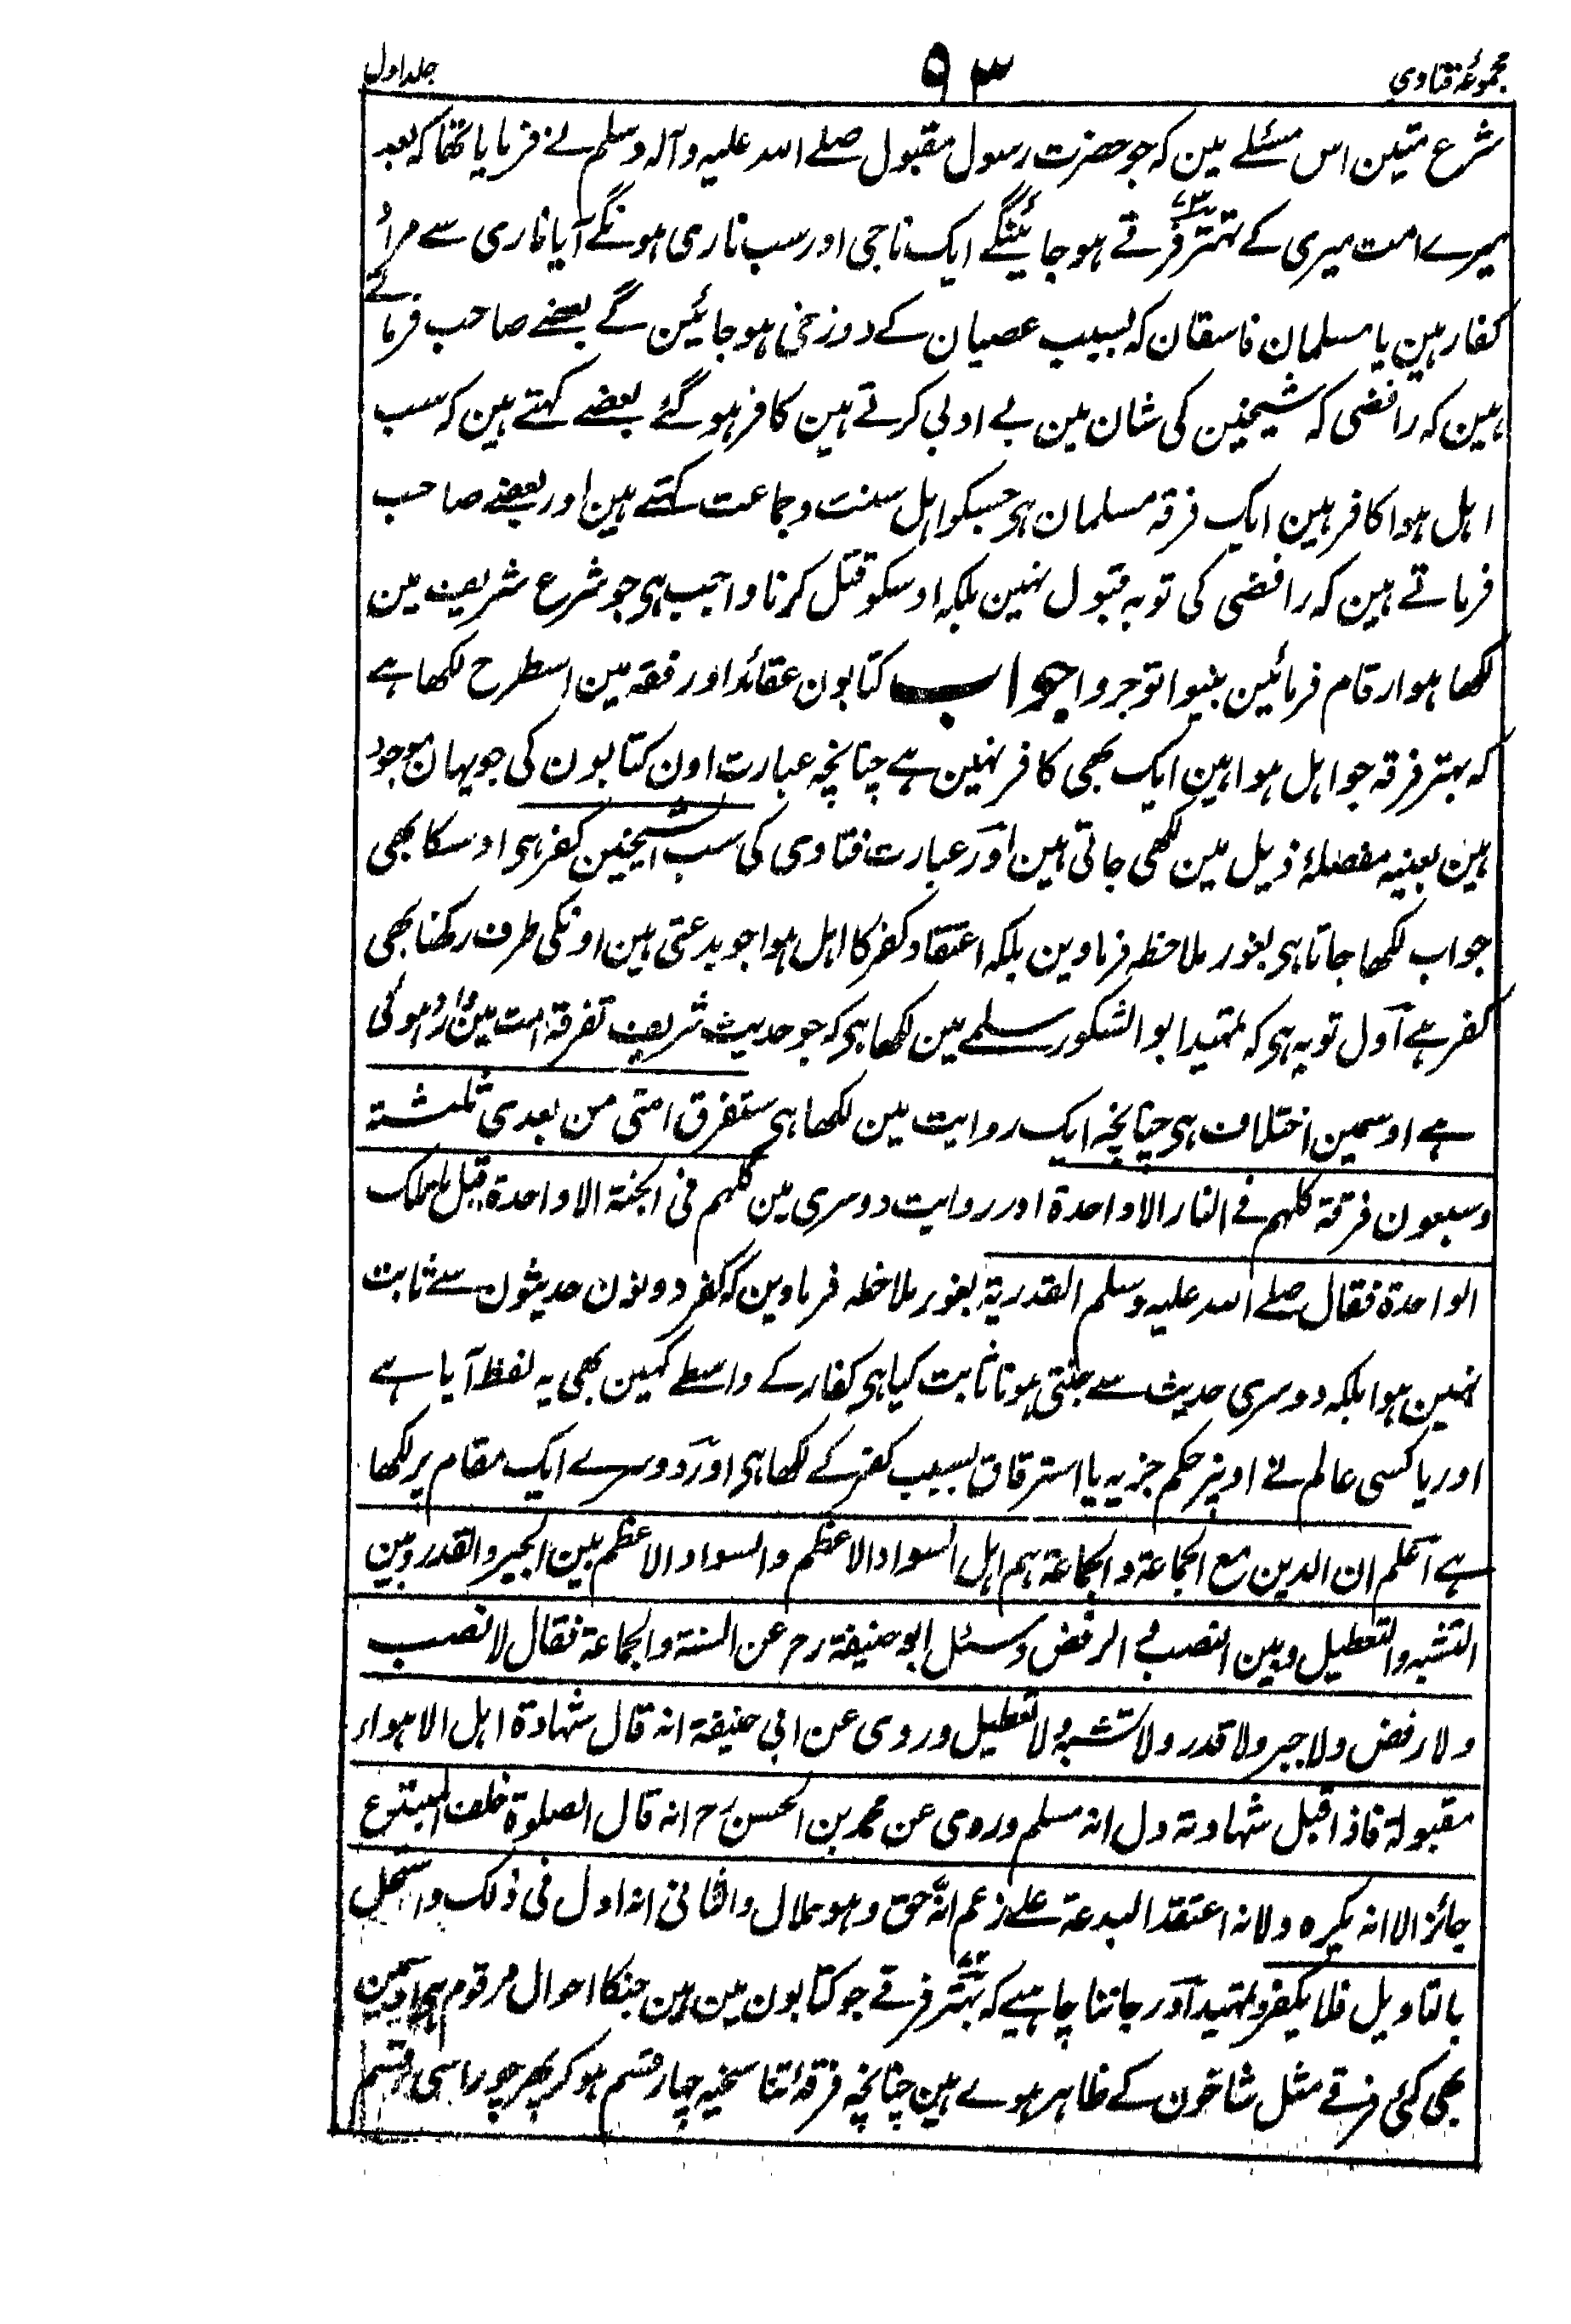 مجموعۂ فتاوی ۹۳ جلد اول
شرع متین اس مسئلے مین کہ جو حضرت رسول مقبول صلے اللہ علیہ وآلہ وسلم نے فرمایا تھا کہ بعد
میرے امت میری کے تہتر فرقے ہو جائینگے ایک ناجی اور سب ناری ہونگے آیا ناری سے مراد
کفار ہین یا مسلمان فاسقان کہ بسبب عصیان کے دوزخی ہو جائین گے بعضے صاحب فرماتے
ہین کہ رافضی کہ شیخین کی شان مین بے ادبی کرتے ہین کافر ہو گئے بعضے کہتے ہین کہ سب
اہل ہوا کافر ہین ایک فرقہ مسلمان ہی جسکو اہل سنت و جماعت کہتے ہین اور بعضے صاحب
فرماتے ہین کہ رافضی کی توبہ قبول نہین بلکہ اوسکو قتل کرنا واجب ہی جو شرع شریف مین
لکھا ہو ارقام فرمائین بینوا توجروا جواب کتابون عقائد اور فقہ مین اسطرح لکھا ہے
کہ بہتر فرقہ جو اہل ہوا ہین ایک بھی کافر نہین ہے چنانچہ عبارت اون کتابون کی جو یہان موجود
ہین بعینہ مفصلۂ ذیل مین لکھی جاتی ہین اور عبارت فتاوی کی سب الشیخین کفر ہی اوسکا بھی
جواب لکھا جاتا ہی بغور ملاحظہ فرماوین بلکہ اعتقاد کفر کا اہل ہوا جو بدعتی ہین اونکی طرف رکھنا بھی
کفر ہے اول تو یہ ہی کہ تمہید ابو الشکور سلمے مین لکھا ہی کہ جو حدیث شریف تفرقۂ امت مین وارد ہوئی
ہے اوسمین اختلاف ہی چنانچہ ایک روایت مین لکھا ہی ستفرق امتی من بعدی ثلثۃ
وسبعون فرقۃ کلہم فے النار الا واحدۃ اور روایت دوسری مین کلہم فی الجنۃ الا واحدۃ قیل ما تلک
الواحدۃ فقال صلے اللہ علیہ وسلم القدریۃ بغور ملاحظہ فرماوین کہ کفر دونون حدیثون سے ثابت
نہین ہوا بلکہ دوسری حدیث سے جنتی ہونا ثابت کیا ہی کفار کے واسطے کہین بھی یہ لفظ آیا ہے
اور یا کسی عالم نے اونپر حکم جزیہ یا استرقاق بسبب کفر کے لکھا ہی اور دوسرے ایک مقام پر لکھا
ہے اعلم ان الدین مع الجماعۃ والجماعۃ ہم اہل السواد الاعظم والسواد الاعظم بین الجبر والقدر وبین
التشبہ والتعطیل وبین النصب و الرفض وسئل ابو حنیفۃ رح عن السنۃ والجماعۃ فقال لا نصب
ولا رفض ولا جبر ولا قدر ولا تشبہ ولا تعطیل وروی عن ابی حنیفۃ انہ قال شہادۃ اہل الاہواء
مقبولۃ فاذا قبل شہادتہ دل انہ مسلم وروی عن محمد بن الحسن رح انہ قال الصلوۃ خلف المبتدع
جائز الا انہ یکرہ ولانہ اعتقد البدعۃ علے زعم انہ حق وہو حلال والثانی انہ اول فی ذلک واستحل
بالتاویل فلا یکفر تمہید اور جاننا چاہیے کہ بہتر فرقے جو کتابون مین ہین جنکا احوال مرقوم ہی اوسمین
بھی کئی فرقے مثل شاخون کے ظاہر ہوے ہین چنانچہ فرقۂ تناسخیہ چار قسم ہو کر پھر چوراسی قسم